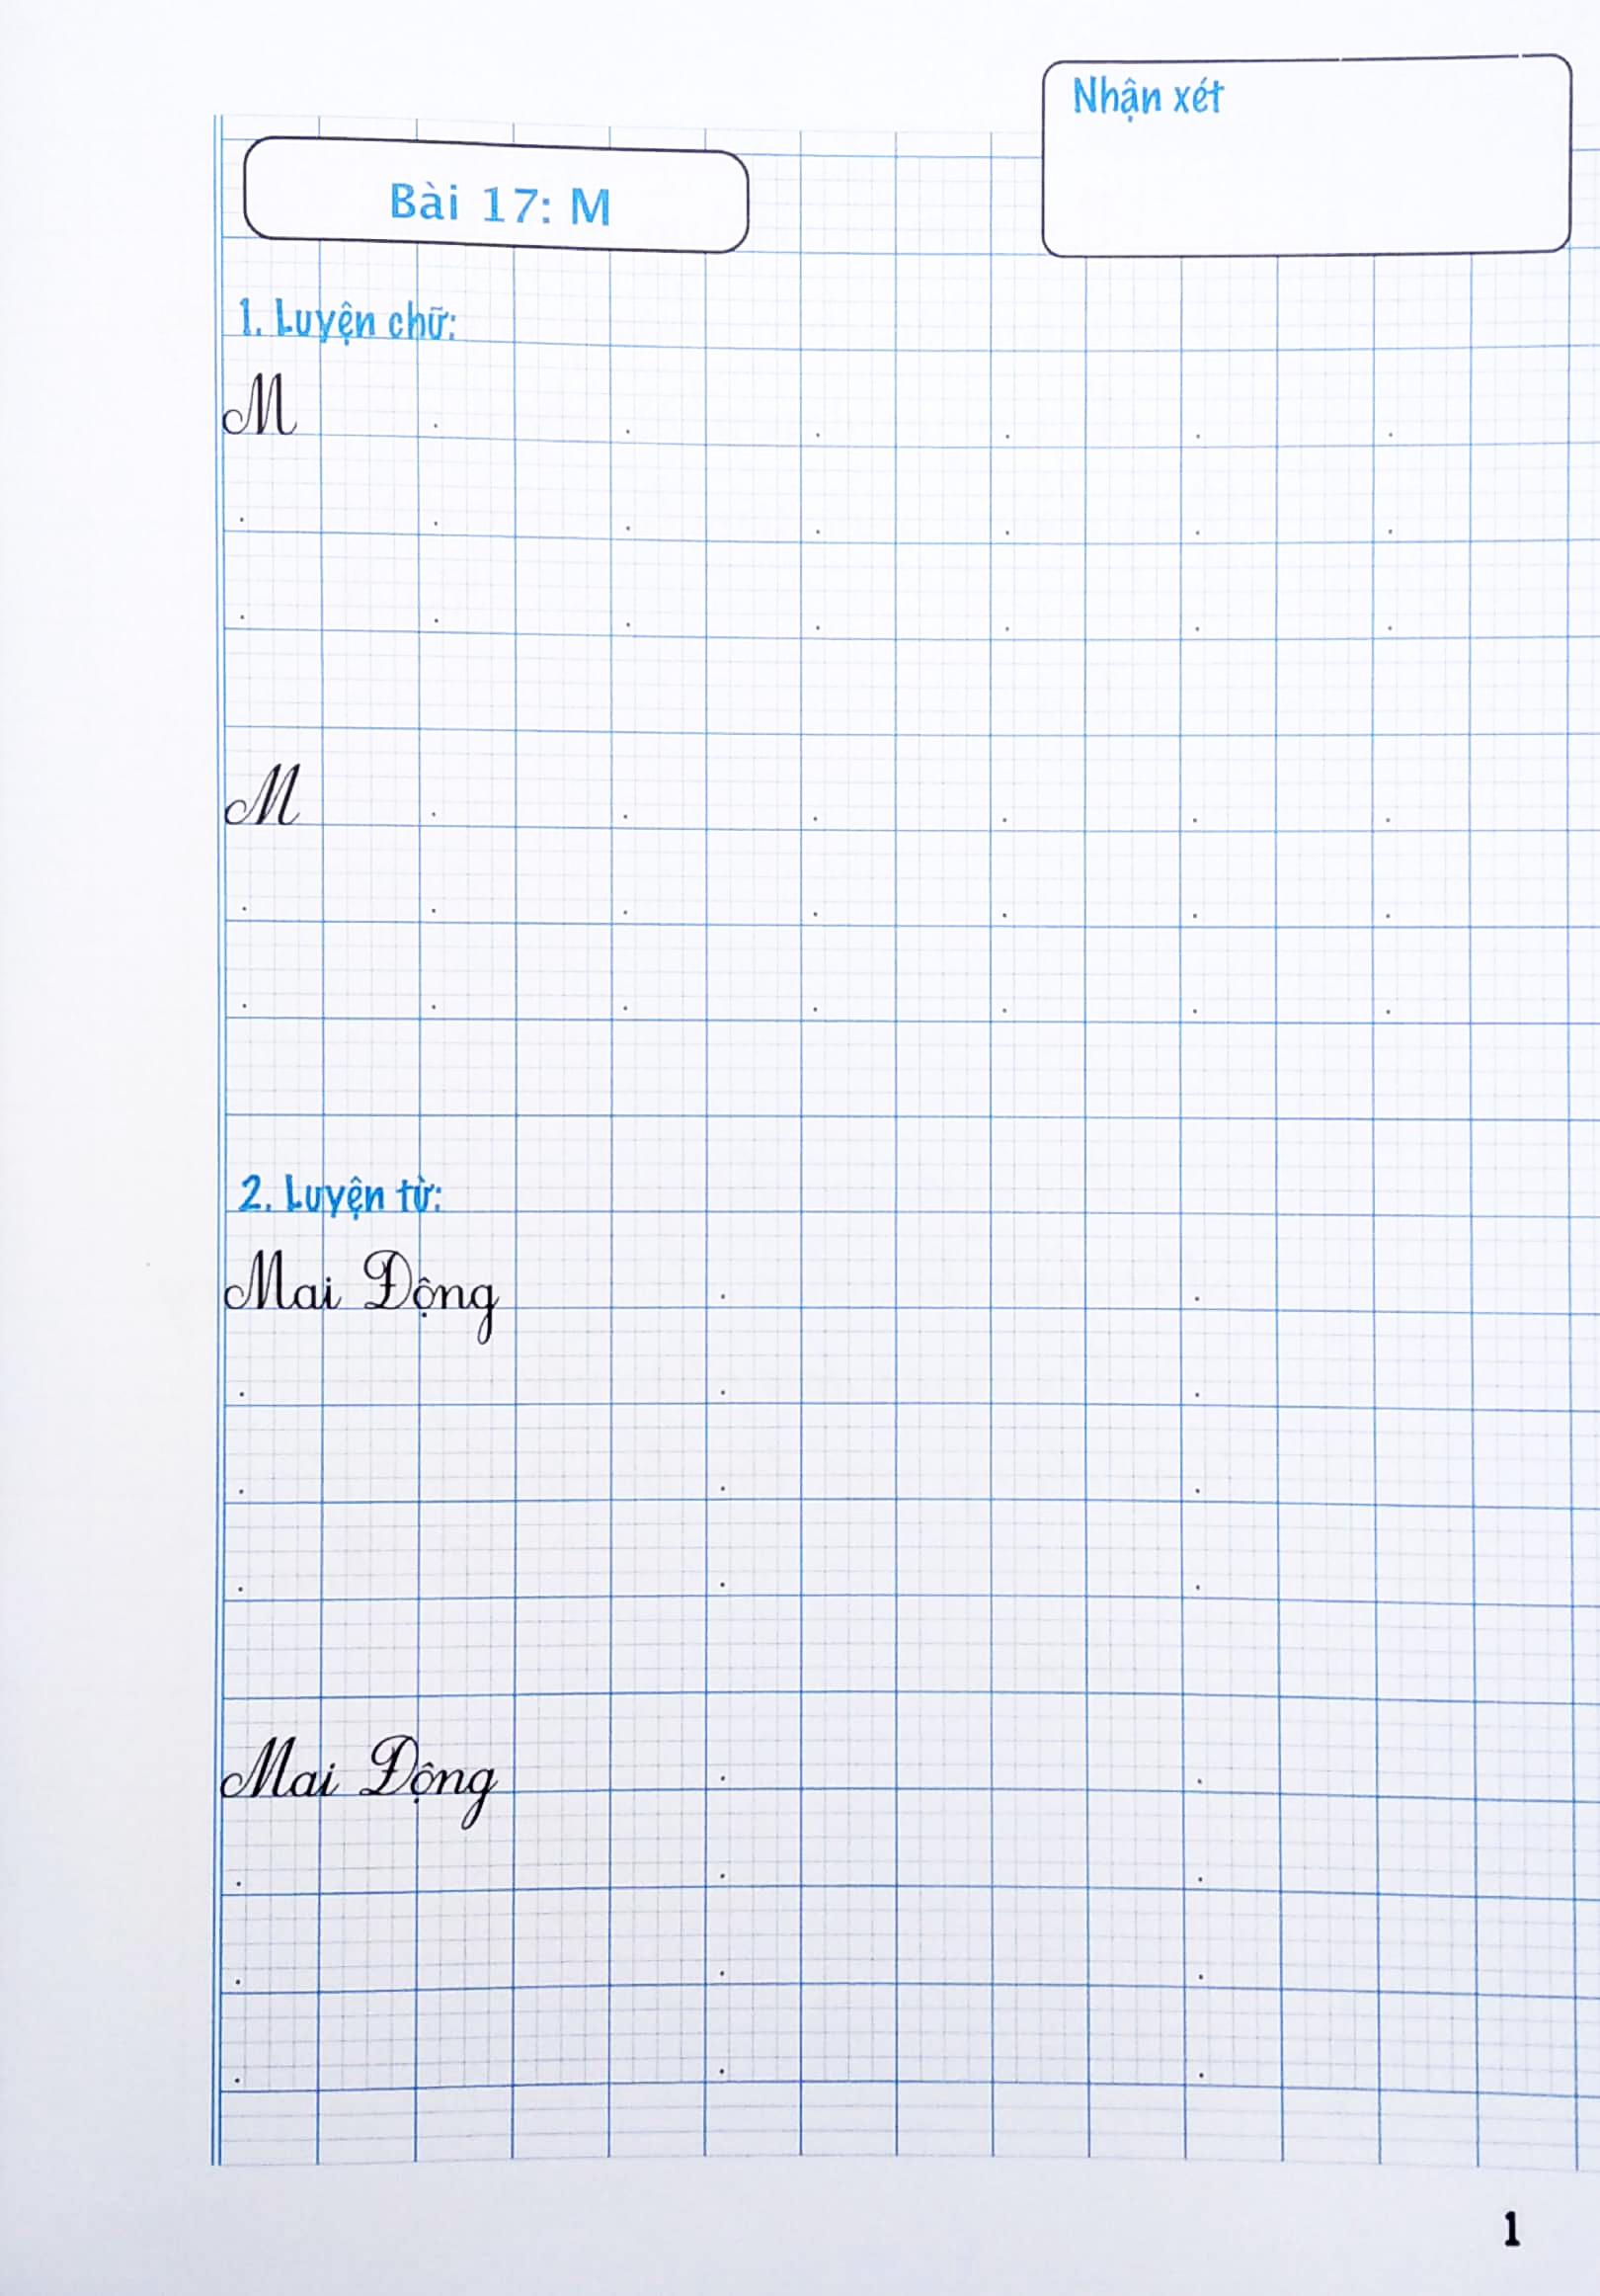 Nhận xét
Bài 17: M
1. Luyện chữ:
M
M
2. Luyện từ:
Mai Động
Mai Động
1